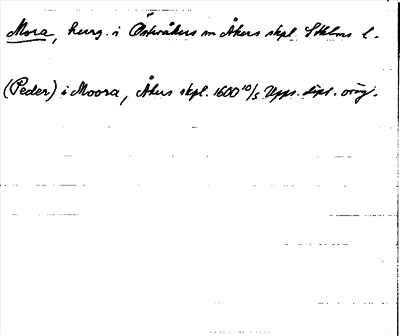 Mora, herrg. i Österåkers sn Åkers skpl. Sthlms l.
(Peder) i Moora, Åkers skpl. 1600 10/5 Upps. dipl. orig.